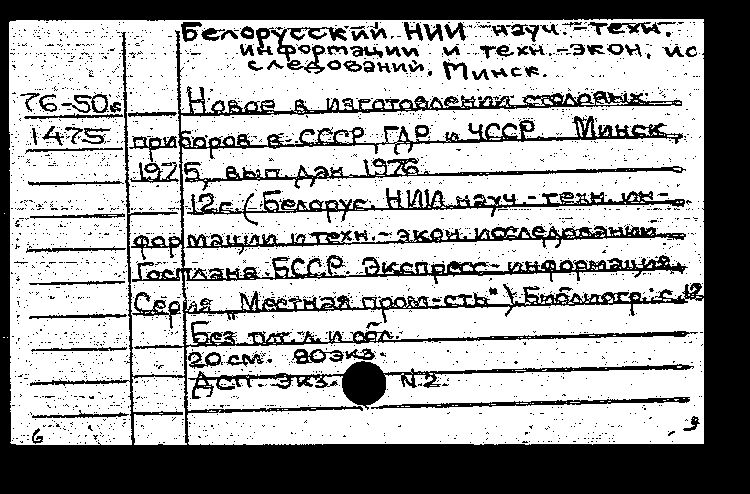 Белорусский НИИ науч.-техн.
информации и техн.-экон. ис
следований. Минск.
76-50с Новое в изготовлении столовых
1475 приборов в СССР, ГДР и ЧССР. Минск,
1975, вып. дан. 1976.
12 с. (Белорус. НИИ науч.-техн. ин-
формации и техн.-экон. исследований
Госплана БССР. Экспресс-информация.
Серия „Местная пром-сть") Библиогр.: с. 12
Без тит. л. и обл.
20 см. 80 экз.
ДСП. Экз. N 2.
6 9